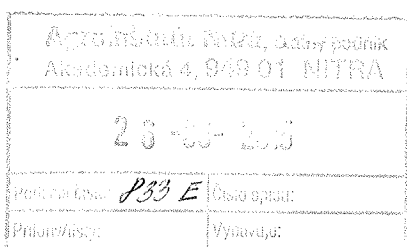 Agroinštitút Nitra, štátny podnik
Akademická 4, 949 01 NITRA
833 E Číslo spisu:
Prílohy/listy: Vybavuje: